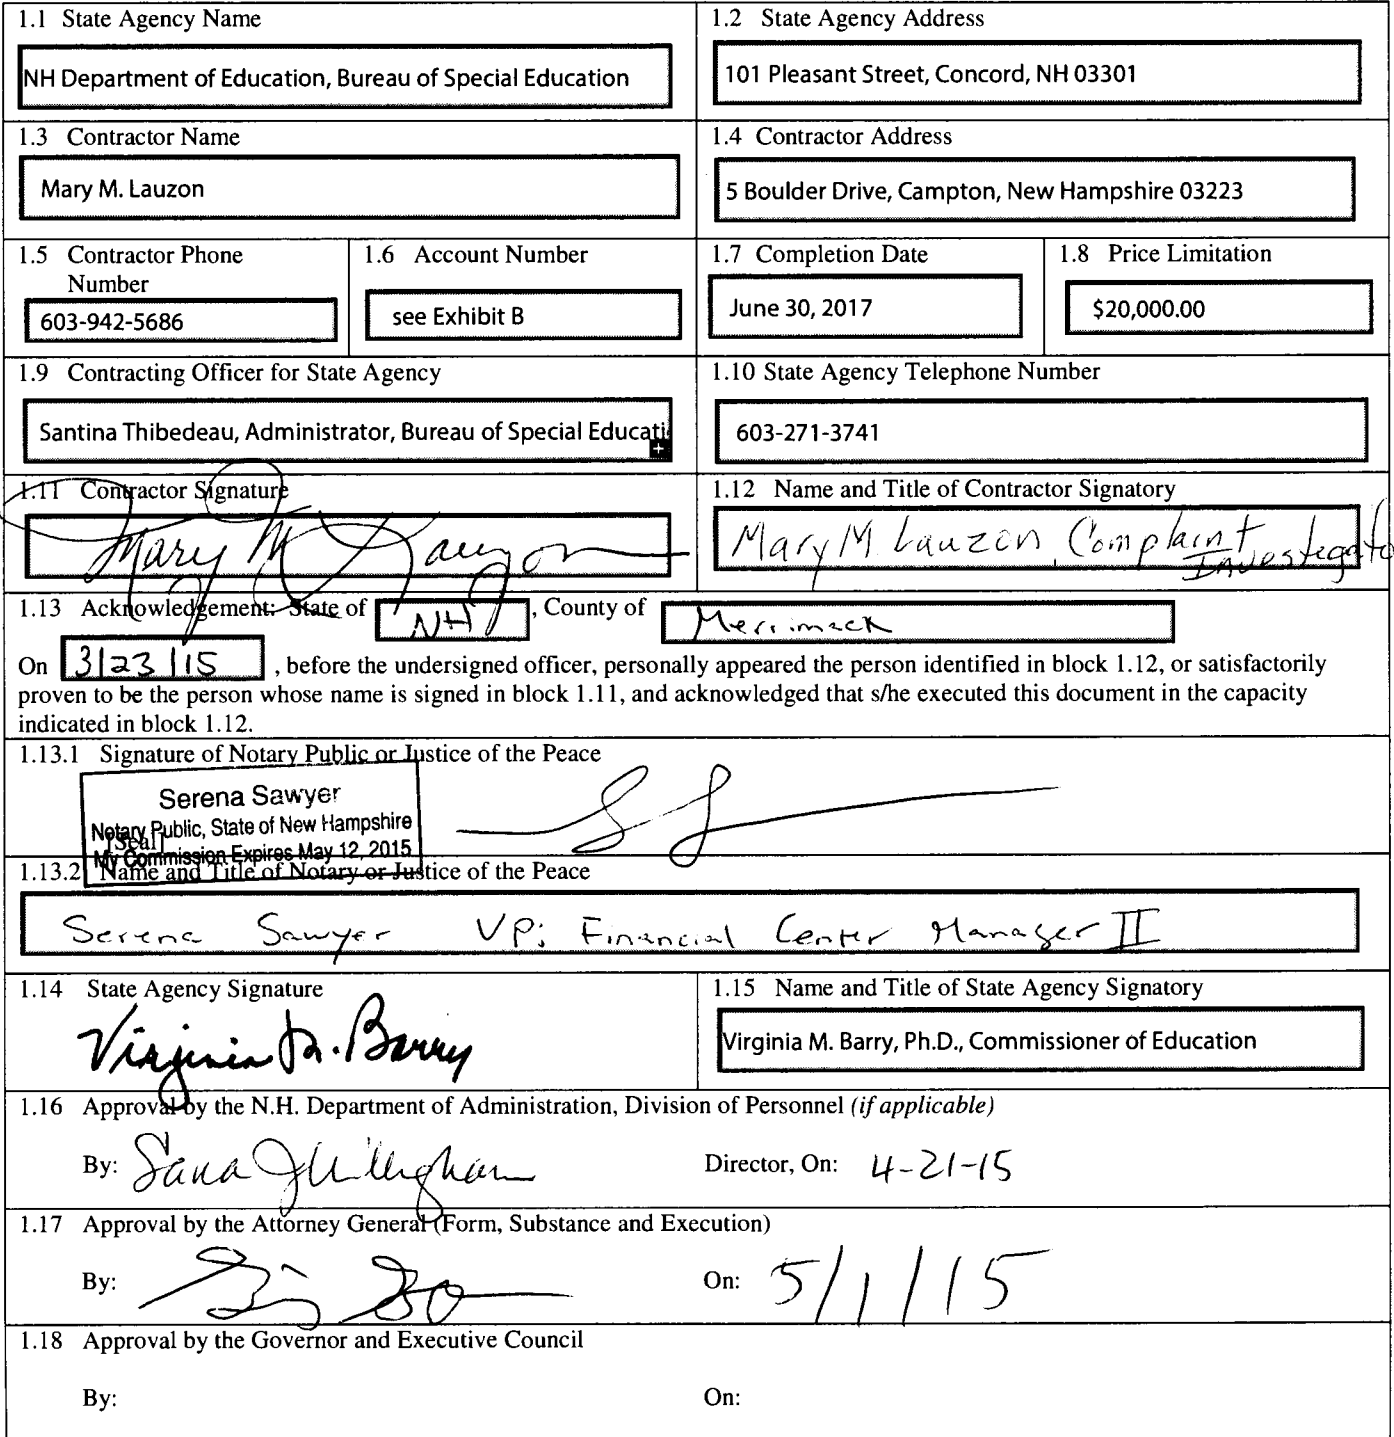 1.1 State Agency Name
NH Department of Education, Bureau of Special Education
1.2 State Agency Address
101 Pleasant Street, Concord, NH 03301
1.3 Contractor Name
Mary M. Lauzon
1.4 Contractor Address
5 Boulder Drive, Campton, New Hampshire 03223
1.5 Contractor Phone
Number
603-942-5686
1.6 Account Number
see Exhibit B
1.7 Completion Date
June 30, 2017
1.8 Price Limitation
$20,000.00
1.9 Contracting Officer for State Agency
Santina Thibedeau, Administrator, Bureau of Special Educati
1.10 State Agency Telephone Number
603-271-3741
1.11 Contractor Signature
Mary M Lauzon
1.12 Name and Title of Contractor Signatory
Mary M. Lauzon, Complaint
Investegato
1.13 Acknowledgement: State of NH, County of Merrimack
On 3/23/15, before the undersigned officer, personally appeared the person identified in block 1.12, or satisfactorily
proven to be the person whose name is signed in block 1.11, and acknowledged that s/he executed this document in the capacity
indicated in block 1.12.
1.13.1 Signature of Notary Public or Justice of the Peace
Serena Sawyer
Notary Public, State of New Hampshire
[Seal]
My Commission Expires May 12, 2015
1.13.2 Name and Title of Notary or Justice of the Peace
Serena Sawyer VP; Financial Center Manager II
1.14 State Agency Signature
Virginia M. Barry
1.15 Name and Title of State Agency Signatory
Virginia M. Barry, Ph.D., Commissioner of Education
1.16 Approval by the N.H. Department of Administration, Division of Personnel (if applicable)
By: Sara J Willingham Director, On: 4-21-15
1.17 Approval by the Attorney General (Form, Substance and Execution)
By: On: 5/1/15
1.18 Approval by the Governor and Executive Council
By: On: